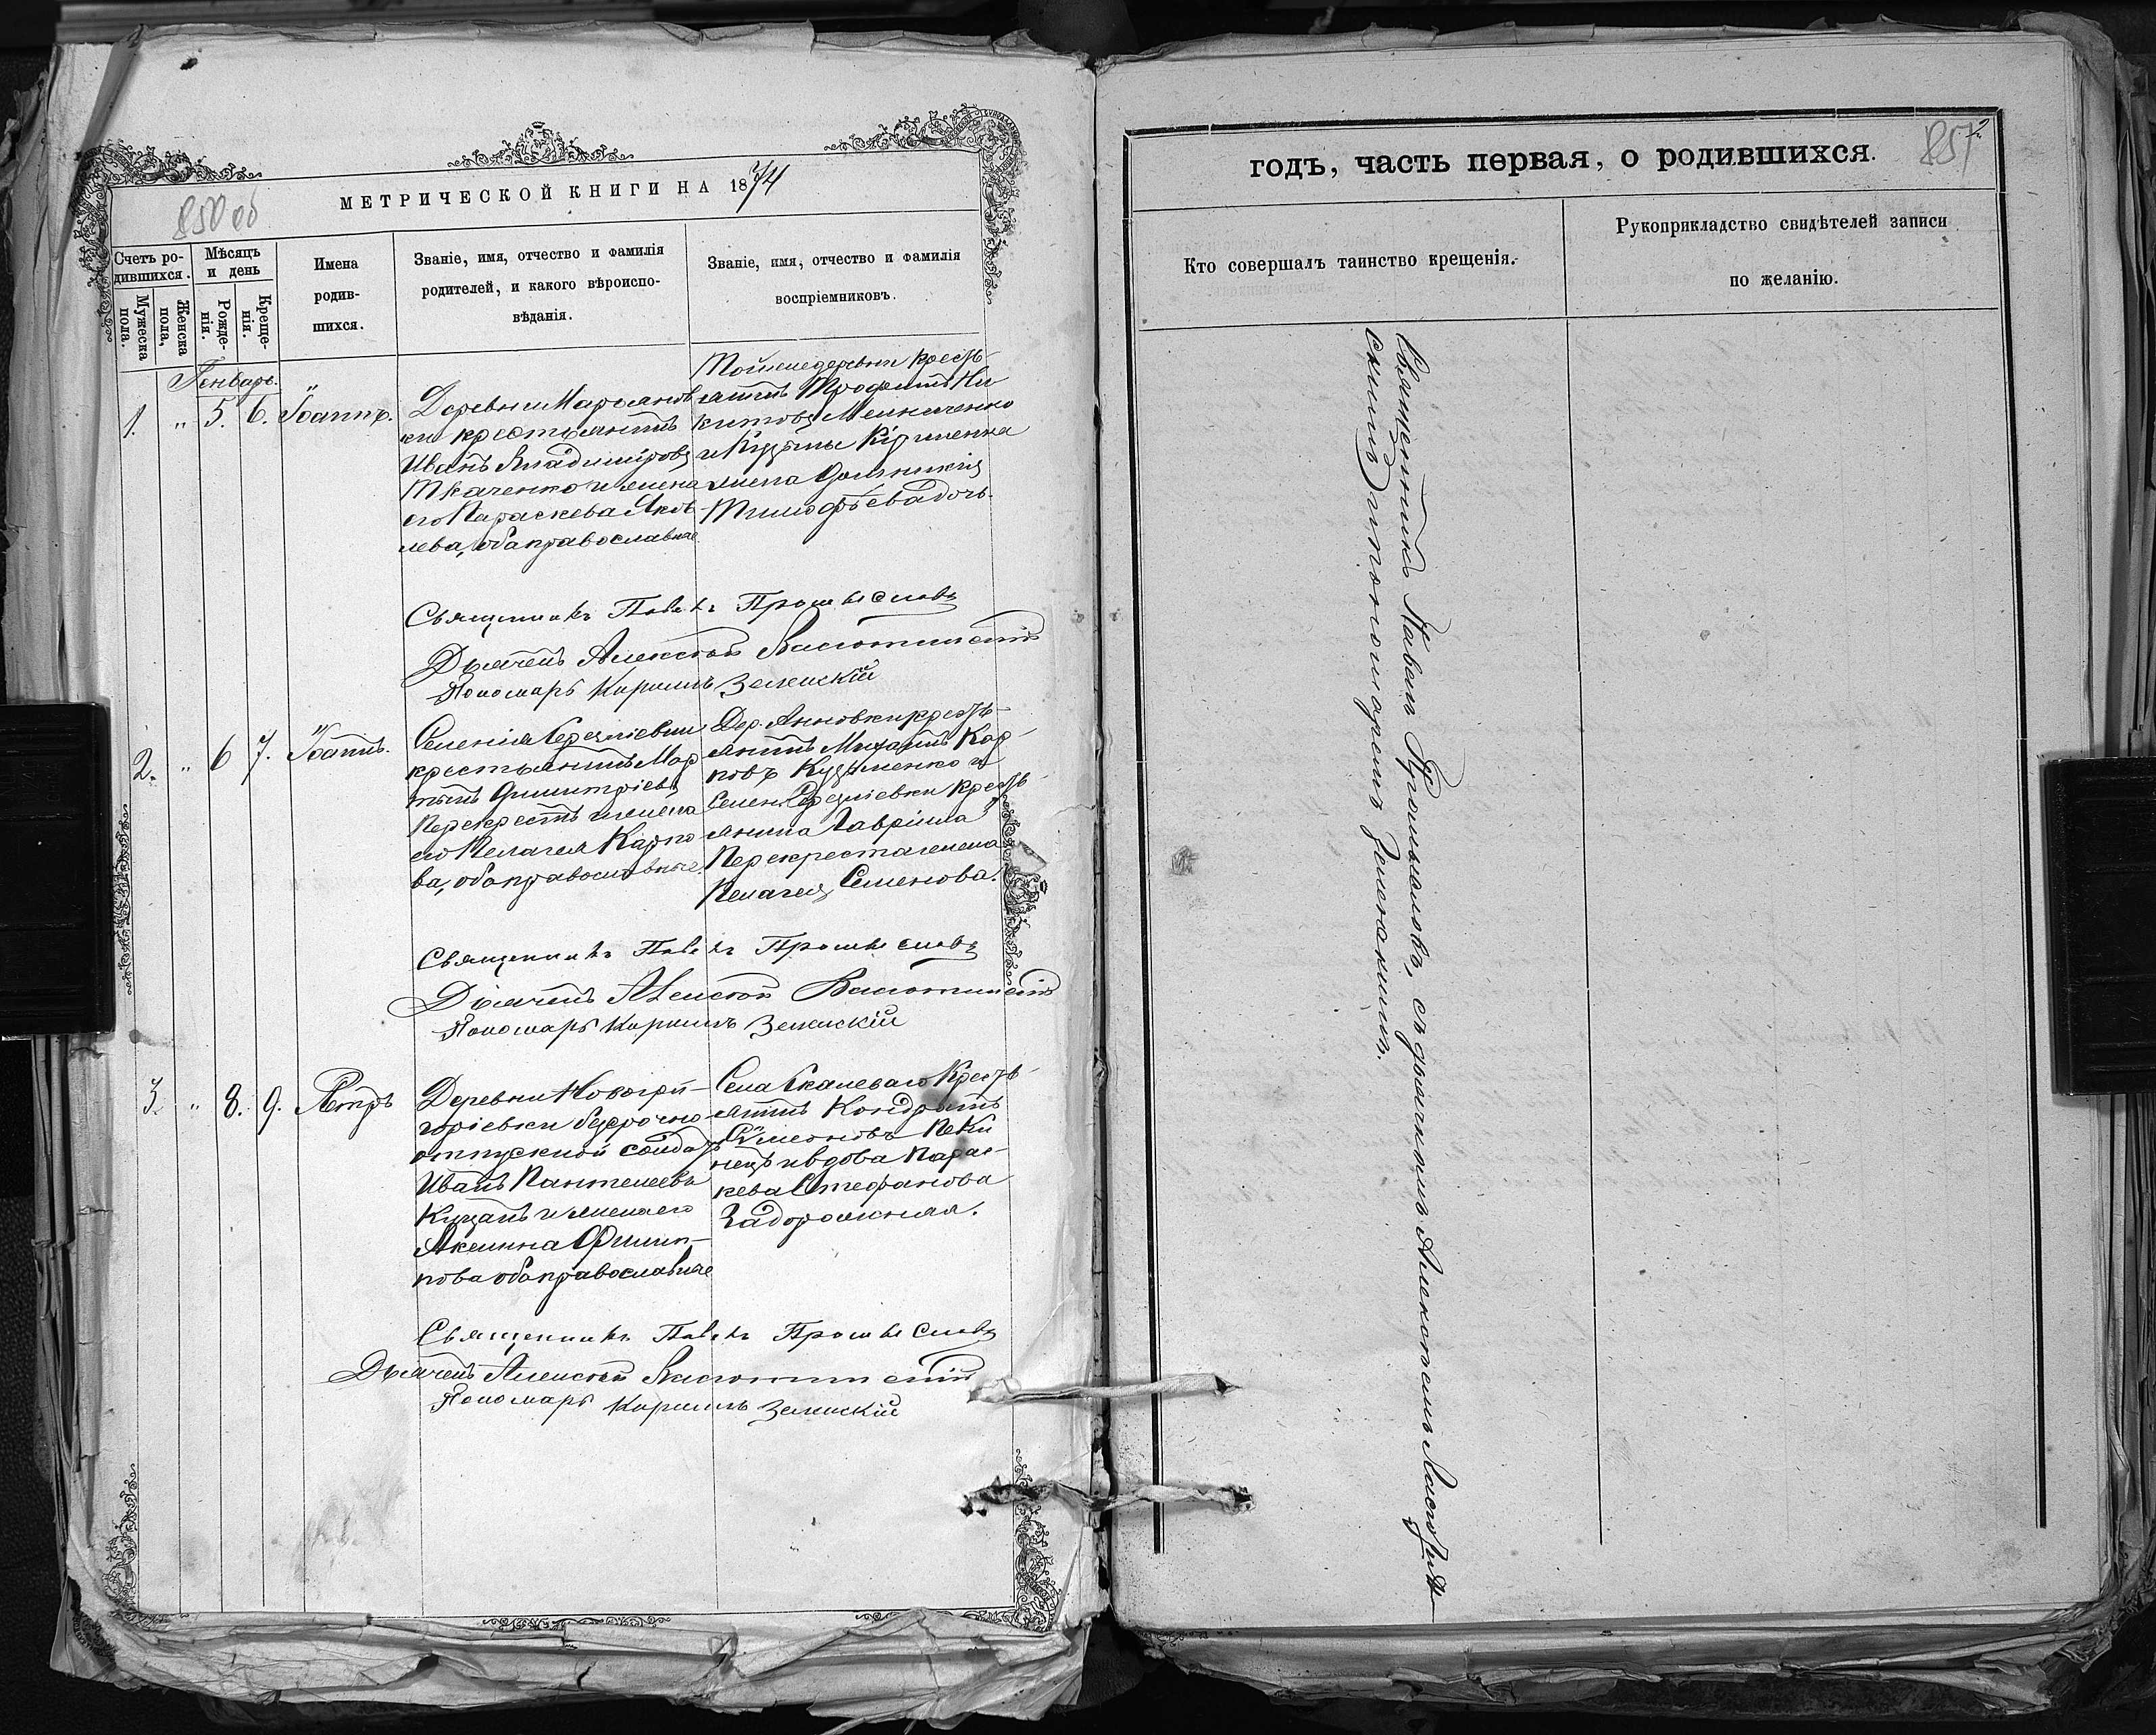 850 об
МЕТРИЧЕСКОЙ КНИГИ НА 1874
Счетъ ро-
дившихся.
Мужеска
пола.
Женска
пола,
Мѣсяцъ
и день
Рожде-
нія.
Креще-
нія.
Имена
родив-
шихся.
Званіе, имя, отчество и фамилія
родителей, и какого вѣроиспо-
вѣданія.
Званіе, имя, отчество и фамилія
воспріемниковъ.
Генварь.
1. " 5. 6. Іоаннъ.
Деревни Марьянов
ки крестьянинъ
Иванъ Владиміровъ
Ткаченко и жена
его Параскева Яков-
лева, оба православные
Той же деревни кресть-
янинъ Трофимъ Ни
китовъ Мельниченко
и Кузьмы
жена
Тимофѣева дочь.
Священникъ Павелъ Промысловъ
Дьячекъ Алексѣй
Пономарь Кириллъ Зеленскій
2. " 6 7. Іоаннъ.
Селенія Сергіевки
крестьянинъ Мар
тынъ Димитріевъ
Перекрестъ и жена
его Пелагея Карпо
ва, оба православные.
Дер. Анновки кресть-
янинъ Михаилъ Кар-
повъ Кузьменко и
Селен. Сергіевки кресть-
янина Гавріила
Перекреста жена
Пелагея Семенова.
Священникъ Павелъ Промысловъ
Дьячекъ Алексѣй
Пономарь Кириллъ Зеленскій
3. " 8. 9. Петръ
Деревни Новогри-
горіевки безсрочно
отпускной солдатъ
Иванъ Пантелеевъ
и жена его
Акелина Филип-
пова оба православные
Села Скалеваго кресть-
янинъ Кондратъ
Симеоновъ
и вдова Парас-
кева Стефанова
Задорожная.
Священникъ Павелъ Промысловъ
Дьячекъ Алексѣй
Пономарь Кириллъ Зеленскій
851
годъ, часть первая, о родившихся.
Кто совершалъ таинство крещенія.
Рукоприкладство свидѣтелей записи
по желанію.
Священникъ Павелъ Промысловъ, съ дьячкомъ Алексѣемъ
скимъ и пономаремъ Зеленскимъ.